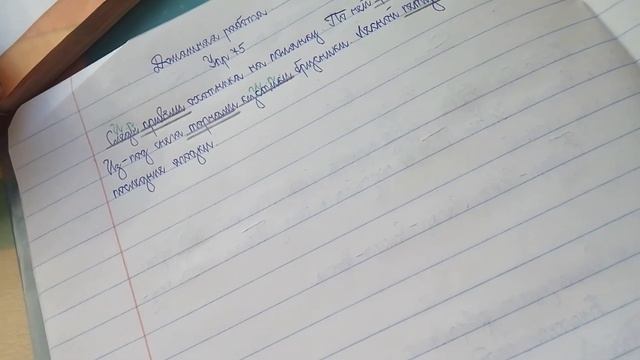 Домашняя работа
Упр 75
Следы привели охотника на полянку По ней
Из-под снега торчали кустики брусники. Лесной
последние ягодки